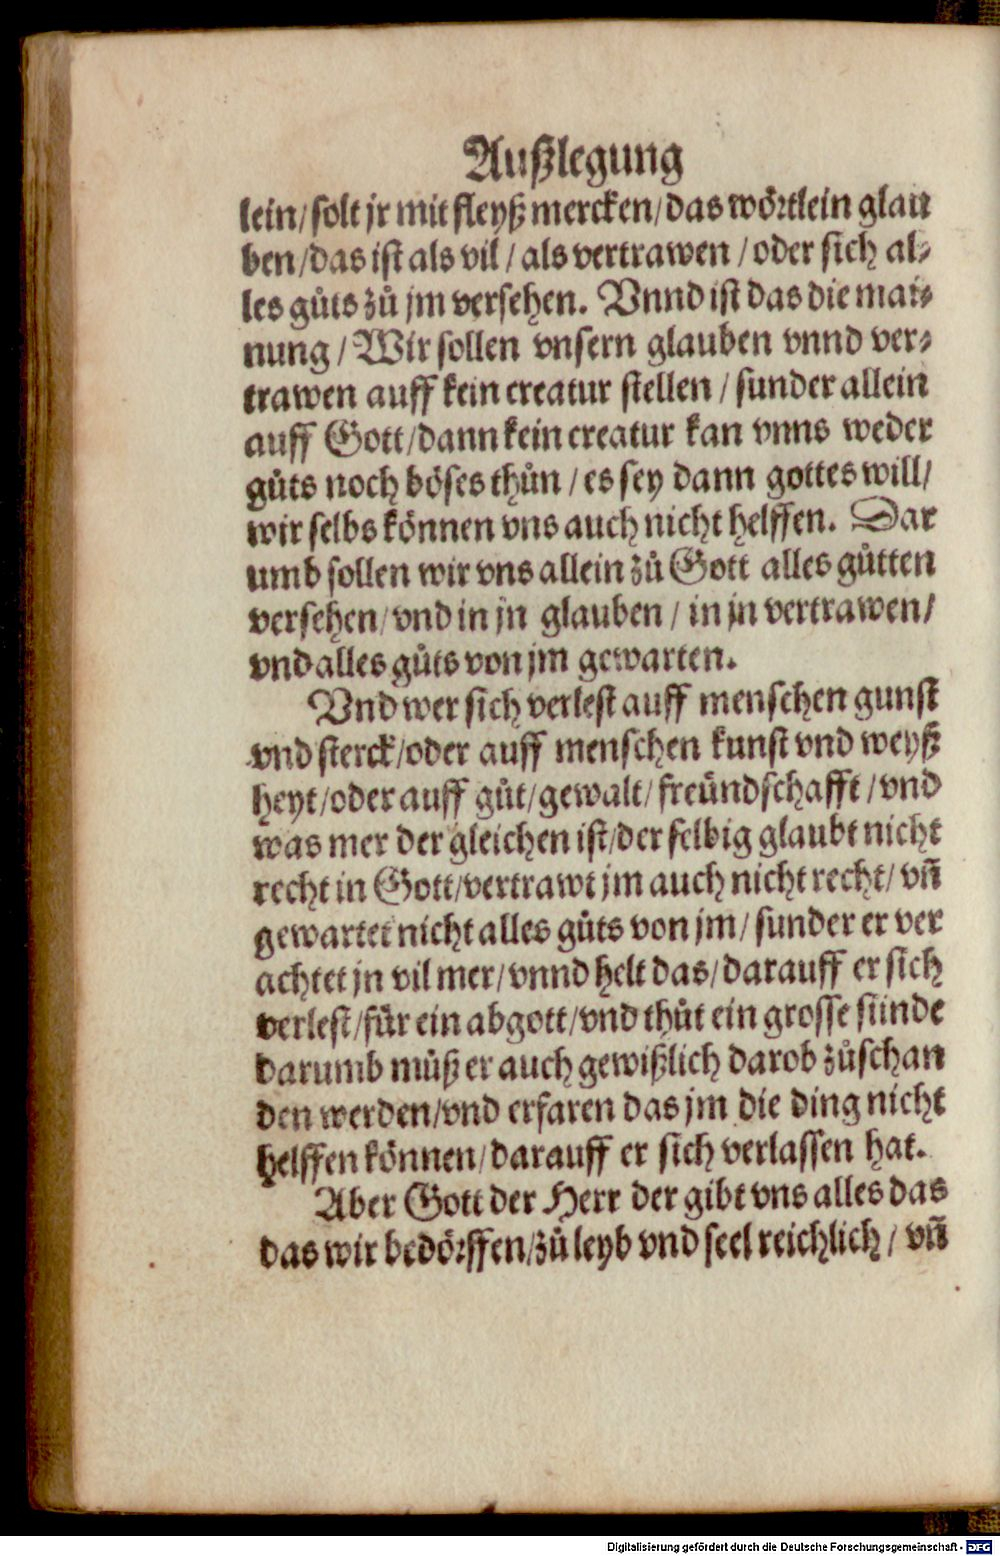 Außlegung
lein/ solt jr mit fleyß mercken/ das wörtlein glau
ben/ das ist als vil / als vertrawen / oder sich al⸗
les gůts zů jm versehen. Vnnd ist das die mai⸗
nung / Wir sollen vnsern glauben vnnd ver⸗
trawen auff kein creatur stellen / sunder allein
auff Gott/ dann kein creatur kan vnns weder
gůts noch böses thůn / es sey dann gottes will/
wir selbs können vns auch nicht helffen. Dar
umb sollen wir vns allein zů Gott alles gůtten
versehen/ vnd in jn glauben / in jn vertrawen/
vnd alles gůts von jm gewarten.
Vnd wer sich verlest auff menschen gunst
vnd sterck/ oder auff menschen kunst vnd weyß
heyt/ oder auff gůt/ gewalt/ freündschafft / vnd
was mer der gleichen ist/ der selbig glaubt nicht
recht in Gott/ vertrawt jm auch nicht recht/ vñ
gewartet nicht alles gůts von jm/ sunder er ver
achtet jn vil mer/ vnnd helt das/ darauff er sich
verlest/ für ein abgott/ vnd thůt ein grosse sünde
darumb můß er auch gewißlich darob zůschan
den werden/ vnd erfaren das jm die ding nicht
helffen können/ darauff er sich verlassen hat.
Aber Gott der Herr der gibt vns alles das
das wir bedörffen/ zů leyb vnd seel reichlich / vñ
Digitalisierung gefördert durch die Deutsche Forschungsgemeinschaft - DFG